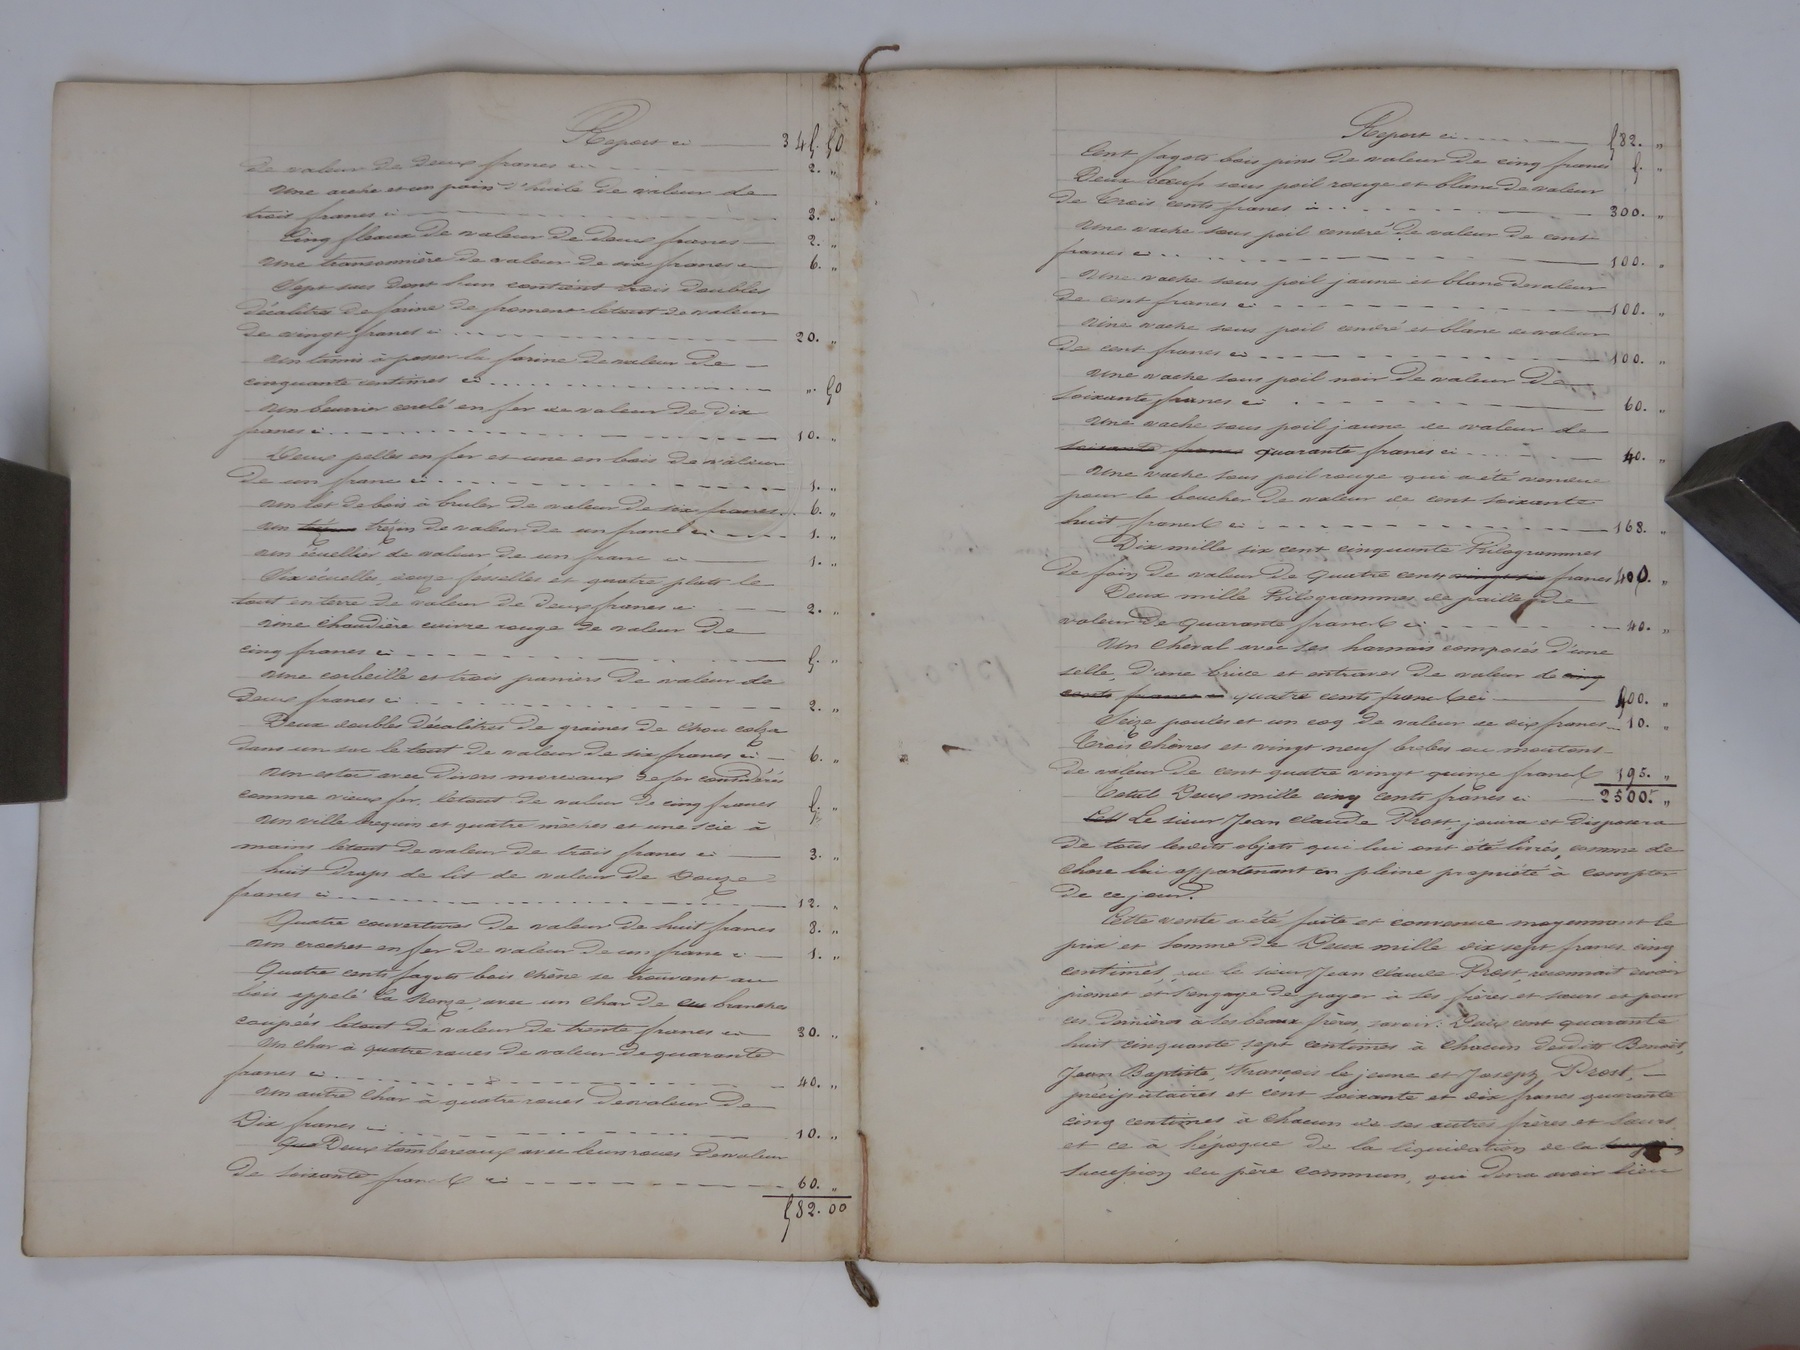 Report ci — 345. 50
de valeur de deux francs ci — 2. "
Une arche et un poin d'huile de valeur de
trois francs ci — 3. "
Cinq fleaux de valeur de deux francs — 2. "
Une transonnière de valeur de six francs ci 6. "
Sept sacs dont l'un contient trois doubles
décalitres de farine de froment letout de valeur
de vingt francs ci — 20. "
Un tamis à passer la farine de valeur de —
cinquante centimes ci — ". 50
Un beurrier cerclé en fer de valeur de dix
francs ci — 10. "
Deux pelles en fer et une en bois de valeur
de un franc ci — 1. "
Un lot de bois à bruler de valeur de six francs 6. "
Un trézon de valeur de un franc ci — 1. "
Un écuellier de valeur de un franc ci — 1. "
Six écuelles, onze fesselles et quatre plats le
tout en terre de valeur de deux francs ci — 2. "
Une chaudière cuivre rouge de valeur de
cinq francs ci — 5. "
Une corbeille et trois paniers de valeur de
deux francs ci — 2. "
Deux doubles décalitres de graines de chou colza
dans un sac le tout de valeur de six francs ci — 6. "
Un estoc avec divers morceaux de fer considérés
comme vieux fer, letout de valeur de cinq francs 5. "
Un ville brequin et quatre mèches et une scie à
mains letout de valeur de trois francs ci — 3. "
huit draps de lit de valeur de Douze
francs ci — 12. "
Quatre couvertures de valeur de huit francs 8. "
Un crochet en fer de valeur de un franc ci — 1. "
Quatre cents fagots bois chêne se trouvant au
bois appelé la Ronze, avec un char de branches
coupées letout de valeur de trente francs ci — 30. "
Un char à quatre roues de valeur de quarante
francs ci — 40. "
Un autre char à quatre roues de valeur de
Dix francs ci — 10. "
Deux tombereaux avec leurs roues de valeur
de soixante francs ci — 60. "
582. 00
Report ci — 582. "
Cent fagots bois pins de valeur de cinq francs 5. "
Deux boeufs sous poil rouge et blanc de valeur
de trois cents francs ci — 300. "
Une vache sous poil cendré de valeur de cent
francs ci — 100. "
Une vache sous poil jaune et blanc de valeur
de cent francs ci — 100. "
Une vache sous poil cendré et blanc de valeur
de cent francs ci — 100. "
Une vache sous poil noir de valeur de
soixante francs ci — 60. "
Une vache sous poil jaune de valeur de
soixante francs quarante francs ci — 40. "
Une vache sous poil rouge qui a été vendue
pour le boucher de valeur de cent soixante
huit francs ci — 168. "
Dix mille six cent cinquante Kilogrammes
de foin de valeur de quatre cents vingt six francs 400. "
Deux mille Kilogrammes de paille de
valeur de quarante francs ci — 40. "
Un cheval avec ses harnais composés d'une
selle, d'une bride et entraves de valeur de cinq
cents francs ci quatre cents francs ci — 400. "
Seize poules et un coq de valeur de dix francs — 10. "
Trois chèvres et vingt neuf brebis ou moutons
de valeur de cent quatre vingt quinze francs 195. "
Total Deux mille cinq cents francs ci — 2500. "
Le sieur Jean Claude Prost, jouira et disposera
de tous lesdits objets qui lui ont été livrés, comme de
chose lui appartenant en pleine propriété à compter
de ce jour.
Cette vente a été faite et convenue moyennant le
prix et somme de Deux mille dix sept francs cinq
centimes, que le sieur Jean Claude Prost, reconnait devoir
promet et s'engage de payer à ses frères et soeurs et pour
ces dernières à ses beaux frères, savoir: Deux cent quarante
huit cinquante sept centimes à chacun desdits Benoît,
Jean Baptiste, François le jeune et Joseph Prost, —
précipiutaires et cent soixante et dix francs quarante
cinq centimes à chacun de ses autres frères et soeurs
et ce à l'époque de la liquidation de la
succession du père commun, qui devra avoir lieu